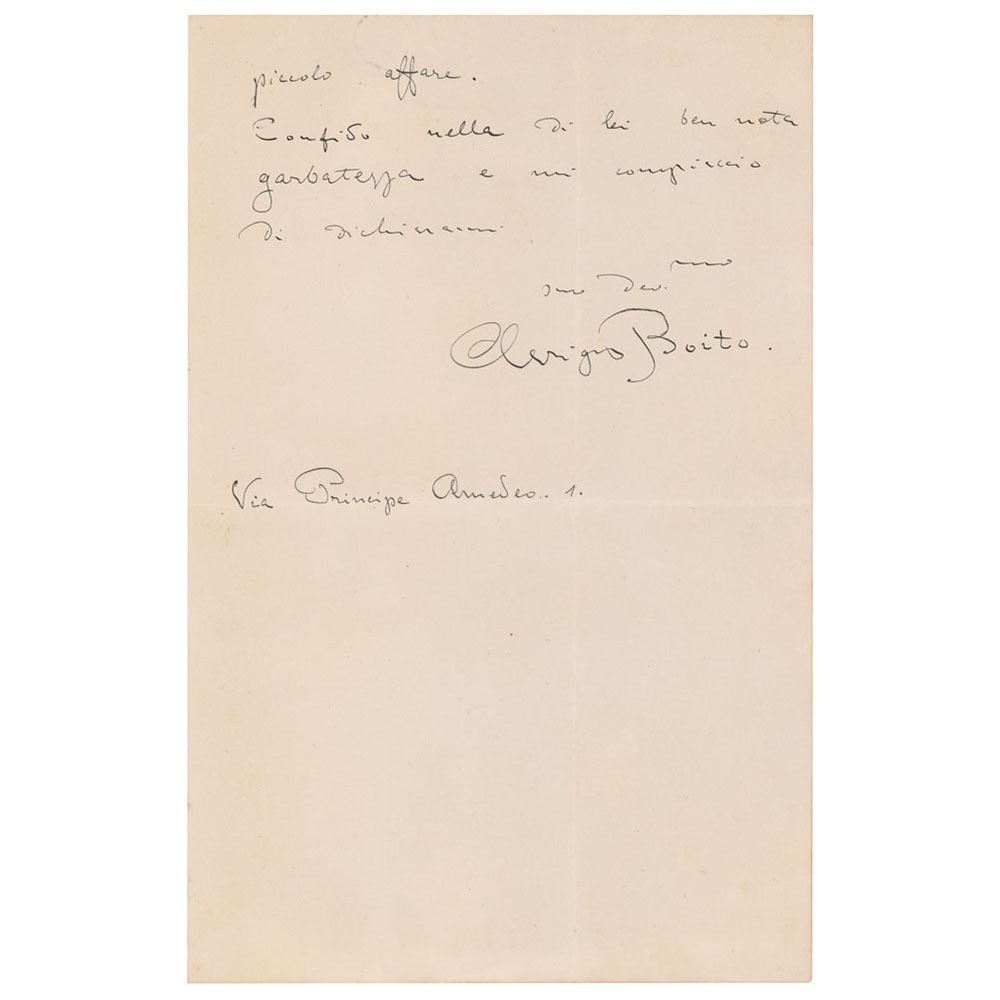 piccolo affare.
Confido nella di lei ben nota
garbatezza e mi compiaccio
di dichiararmi
suo dev.mo
Arrigo Boito.
Via Principe Amedeo. 1.